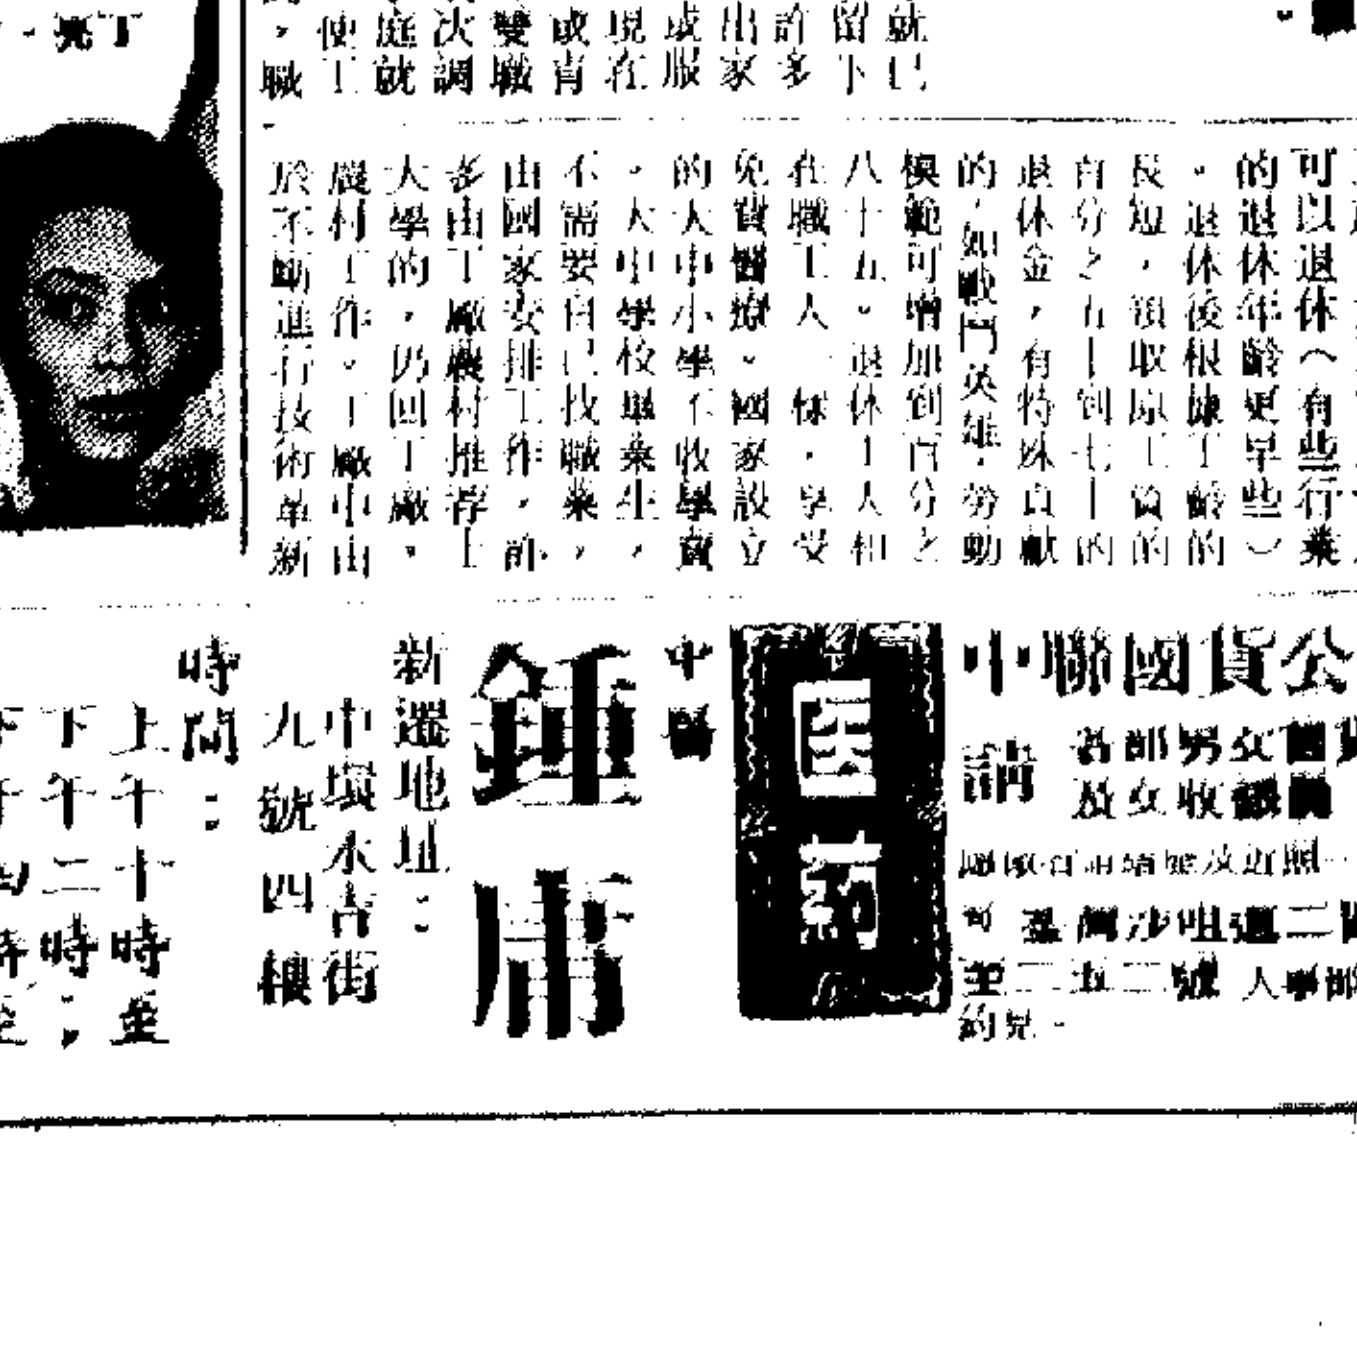 就已
留下
許多
出家
或服
現在
或青
雙職
次調
庭就
使工
，職
可以退休（有些行業
的退休年齡更早些）
。退休後根據工齡的
長短，領取原工資的
百分之五十到七十的
退休金，有特殊貢獻
的，如戰鬥英雄，勞動
模範可增加到百分之
八十五。退休工人和
在職工人一樣，享受
免費醫療。國家設立
的大中小學不收學費
。大中學校畢業生，
不需要自己找職業，
由國家安排工作，許
多由工廠農村推荐上
大學的，仍回工廠，
農村工作。工廠中由
於不斷進行技術革新
中聯國貨公
請
男女
女收
近照
灣沙咀道二
二五二號 人事部
約見。
医药
中醫
鍾庸
新遷地址：
中環永吉街
九號四樓
時間：
上午十時至
下午二時；